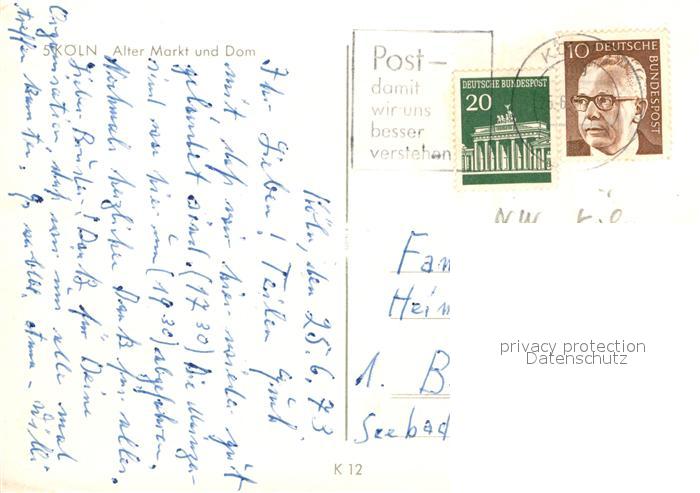 5 KÖLN Alter Markt und Dom
Post-
damit
wir uns
besser
verstehen
DEUTSCHE BUNDESPOST
20
10 DEUTSCHE
BUNDESPOST
Köln, den 25.6.73
Ihr Lieben! Teilen Euch
mit daß wir hier wieder gut
gelandet sind. (17 30) Die
sind von hier um (19 30) abgefahren.
Nochmal herzlichen Dank für alles.
Lieber Bruder! Dank für Deine
Organisation, daß wir uns alle mal
treffen konnten.
Fam
Hein
1. B
Seebad
K 12
privacy protection
Datenschutz